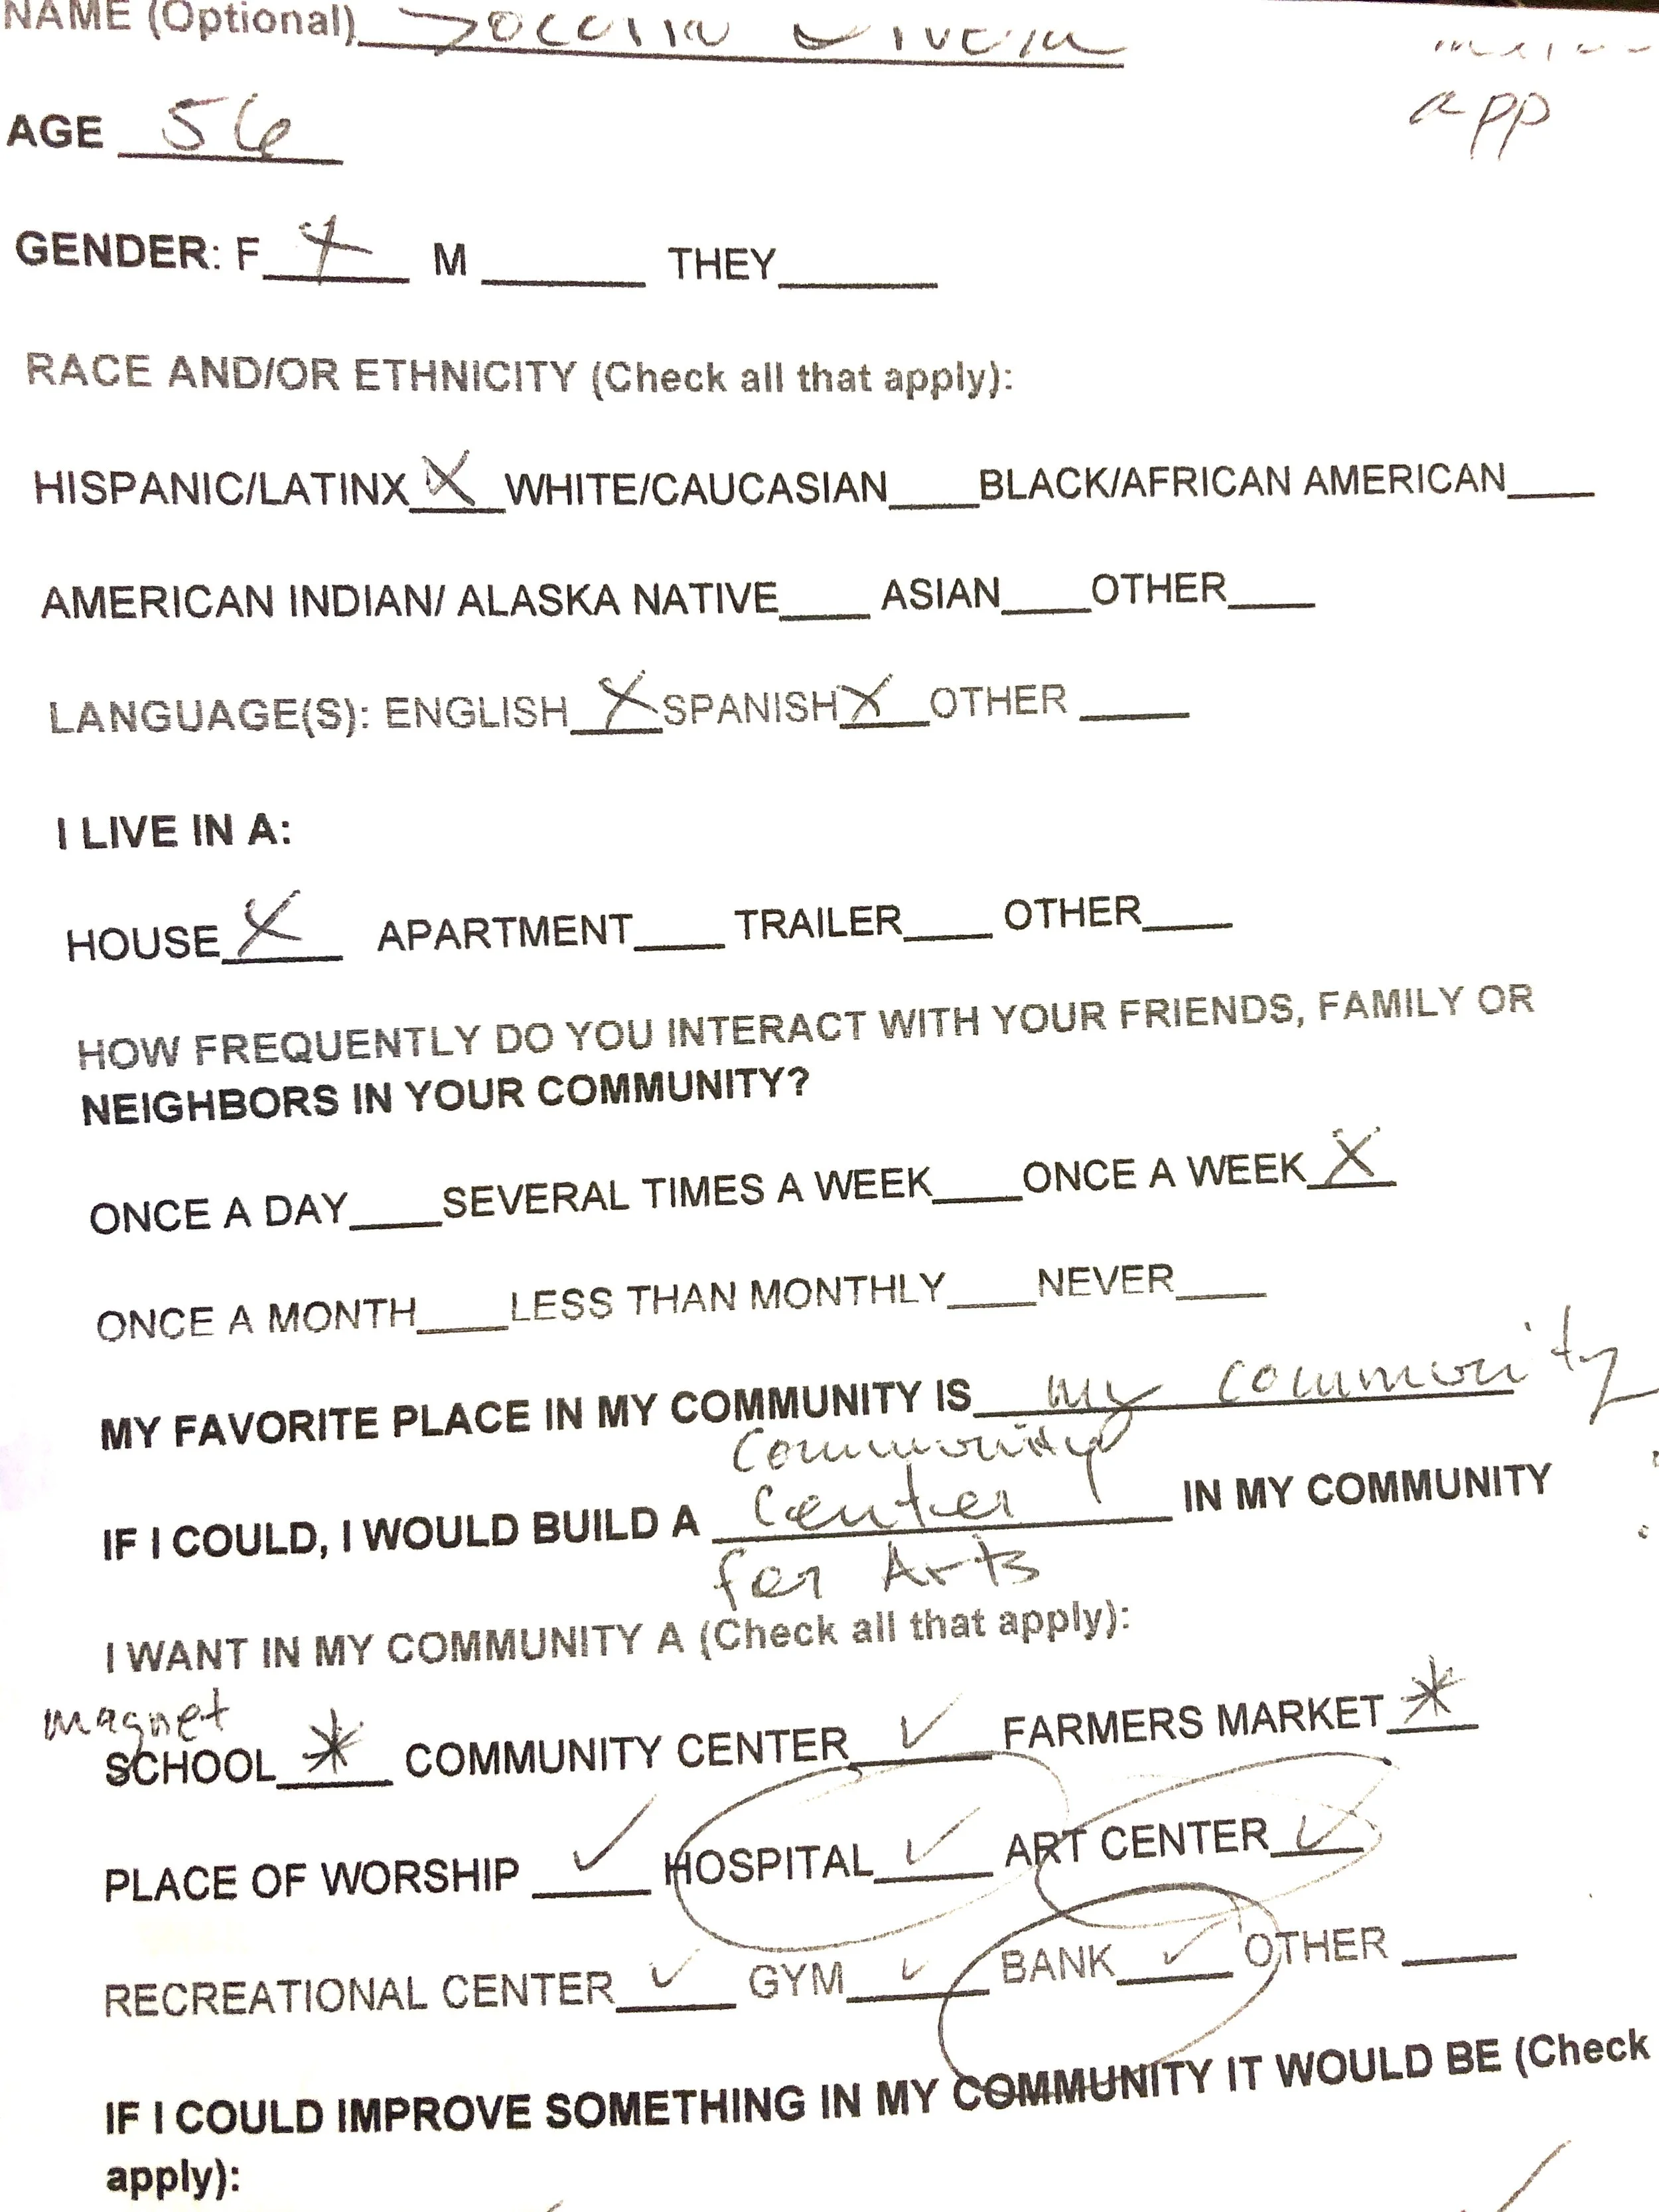 NAME (Optional)
app
AGE 56
GENDER: F X M ____ THEY ____
RACE AND/OR ETHNICITY (Check all that apply):
HISPANIC/LATINX X WHITE/CAUCASIAN ____ BLACK/AFRICAN AMERICAN ____
AMERICAN INDIAN/ ALASKA NATIVE ____ ASIAN ____ OTHER ____
LANGUAGE(S): ENGLISH X SPANISH X OTHER ____
I LIVE IN A:
HOUSE X APARTMENT ____ TRAILER ____ OTHER ____
HOW FREQUENTLY DO YOU INTERACT WITH YOUR FRIENDS, FAMILY OR
NEIGHBORS IN YOUR COMMUNITY?
ONCE A DAY ____ SEVERAL TIMES A WEEK ____ ONCE A WEEK X
ONCE A MONTH ____ LESS THAN MONTHLY ____ NEVER ____
MY FAVORITE PLACE IN MY COMMUNITY IS my community
Community
IF I COULD, I WOULD BUILD A Center IN MY COMMUNITY
for Arts
I WANT IN MY COMMUNITY A (Check all that apply):
magnet
SCHOOL * COMMUNITY CENTER ✓ FARMERS MARKET *
PLACE OF WORSHIP ✓ HOSPITAL ✓ ART CENTER ✓
RECREATIONAL CENTER ✓ GYM ✓ BANK ✓ OTHER ____
IF I COULD IMPROVE SOMETHING IN MY COMMUNITY IT WOULD BE (Check
apply):